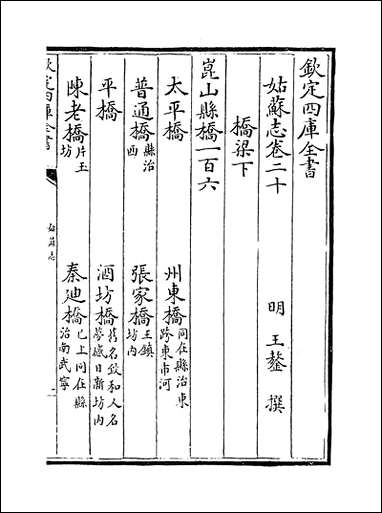 欽定四庫全書
姑蘇志卷二十
明 王鏊 撰
橋梁下
崑山縣橋一百六
太平橋 州東橋同在縣治東跨東市河
普通橋縣治西 張家橋王鎮坊内
平橋 酒坊橋舊名致和人名夢感日新坊内
陳老橋片玉坊 秦迪橋已上同在縣治南武寧
欽定四庫全書
姑蘇志
一